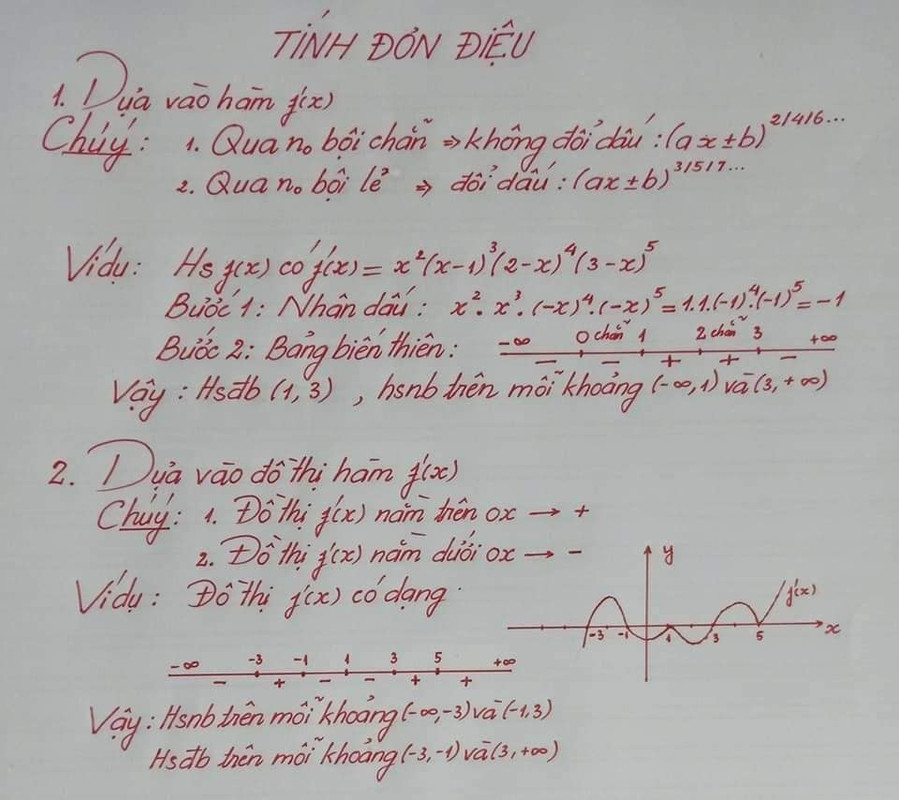 TÍNH ĐƠN ĐIỆU
1. Dựa vào hàm f'(x)
Chú ý: 1. Qua n₀ bội chẵn ⇒ không đổi dấu : (ax ± b)^2/4/6...
2. Qua n₀ bội lẻ ⇒ đổi dấu : (ax ± b)^3/5/7...
Ví dụ: Hs f(x) có f'(x) = x²(x-1)³(2-x)⁴(3-x)⁵
Bước 1: Nhân dấu: x². x³. (-x)⁴. (-x)⁵ = 1.1.(-1)⁴.(-1)⁵ = -1
Bước 2: Bảng biến thiên:
-∞ 0 chẵn 1 2 chẵn 3 +∞
- - + + -
Vậy : Hsđb (1, 3) , hsnb trên mỗi khoảng (-∞, 1) và (3, +∞)
2. Dựa vào đồ thị hàm f'(x)
Chú ý: 1. Đồ thị f'(x) nằm trên ox → +
2. Đồ thị f'(x) nằm dưới ox → -
Ví dụ: Đồ thị f'(x) có dạng
y
f'(x)
-3 -1 1 3 5 x
-∞ -3 -1 1 3 5 +∞
- + - - + +
Vậy : Hsnb trên mỗi khoảng (-∞, -3) và (-1, 3)
Hsđb trên mỗi khoảng (-3, -1) và (3, +∞)